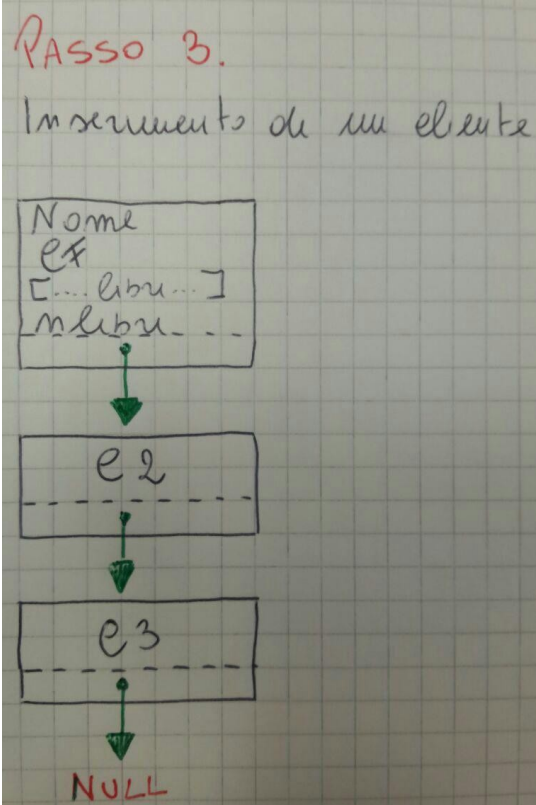 PASSO 3.
Inserimento di un cliente
Nome
CF
[.... libri ... ]
nlibri
C2
C3
NULL